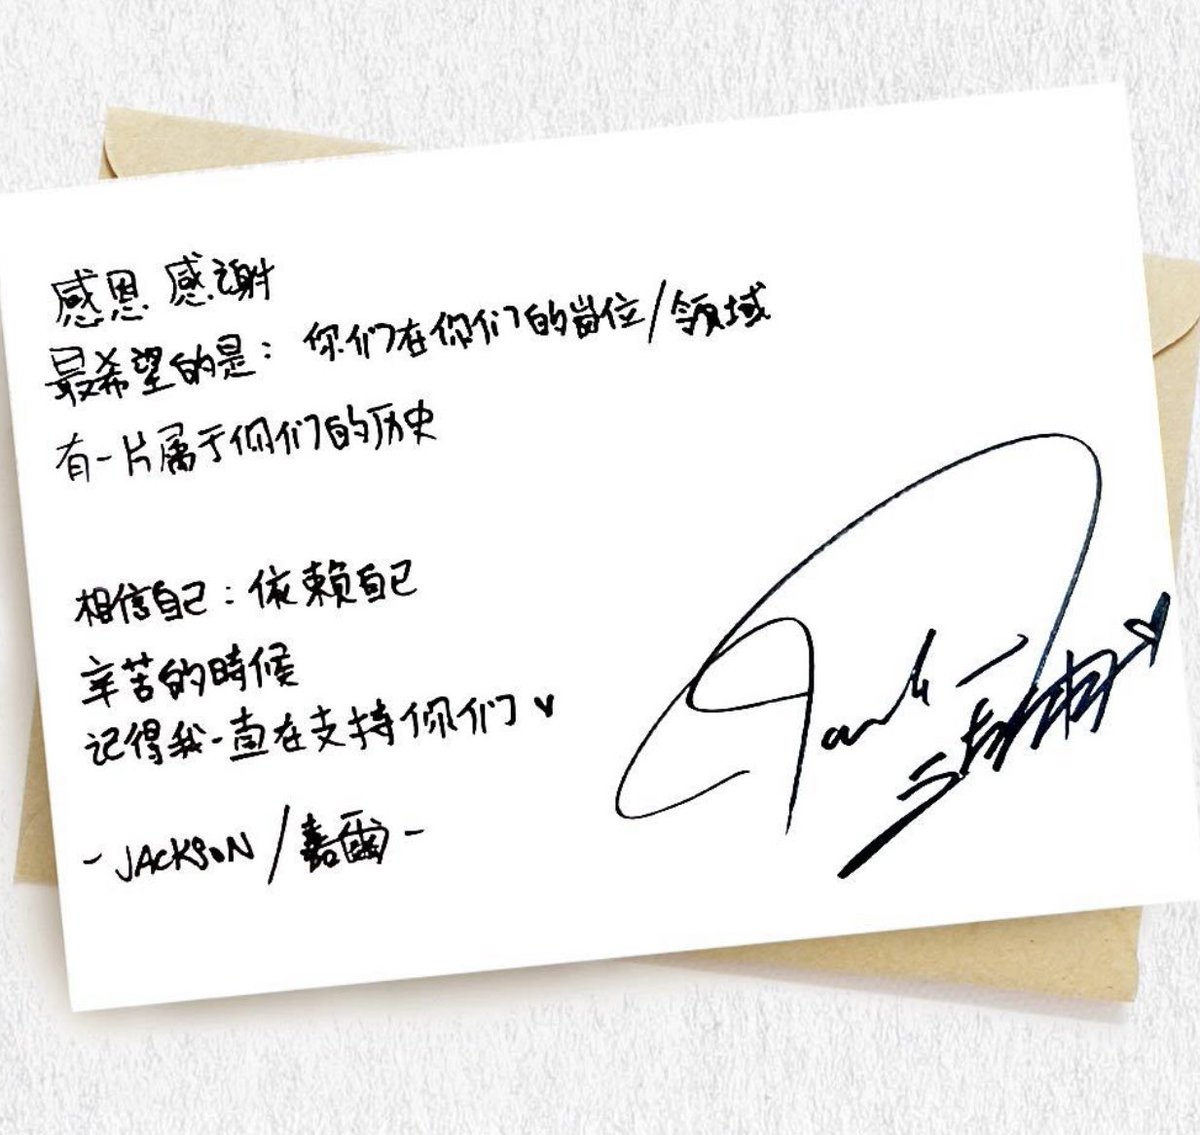 感恩 感谢
最希望的是：你们在你们的岗位/领域
有一片属于你们的历史
相信自己：依赖自己
辛苦的時候
记得我一直在支持你们♥
- JACKSON / 嘉爾 -